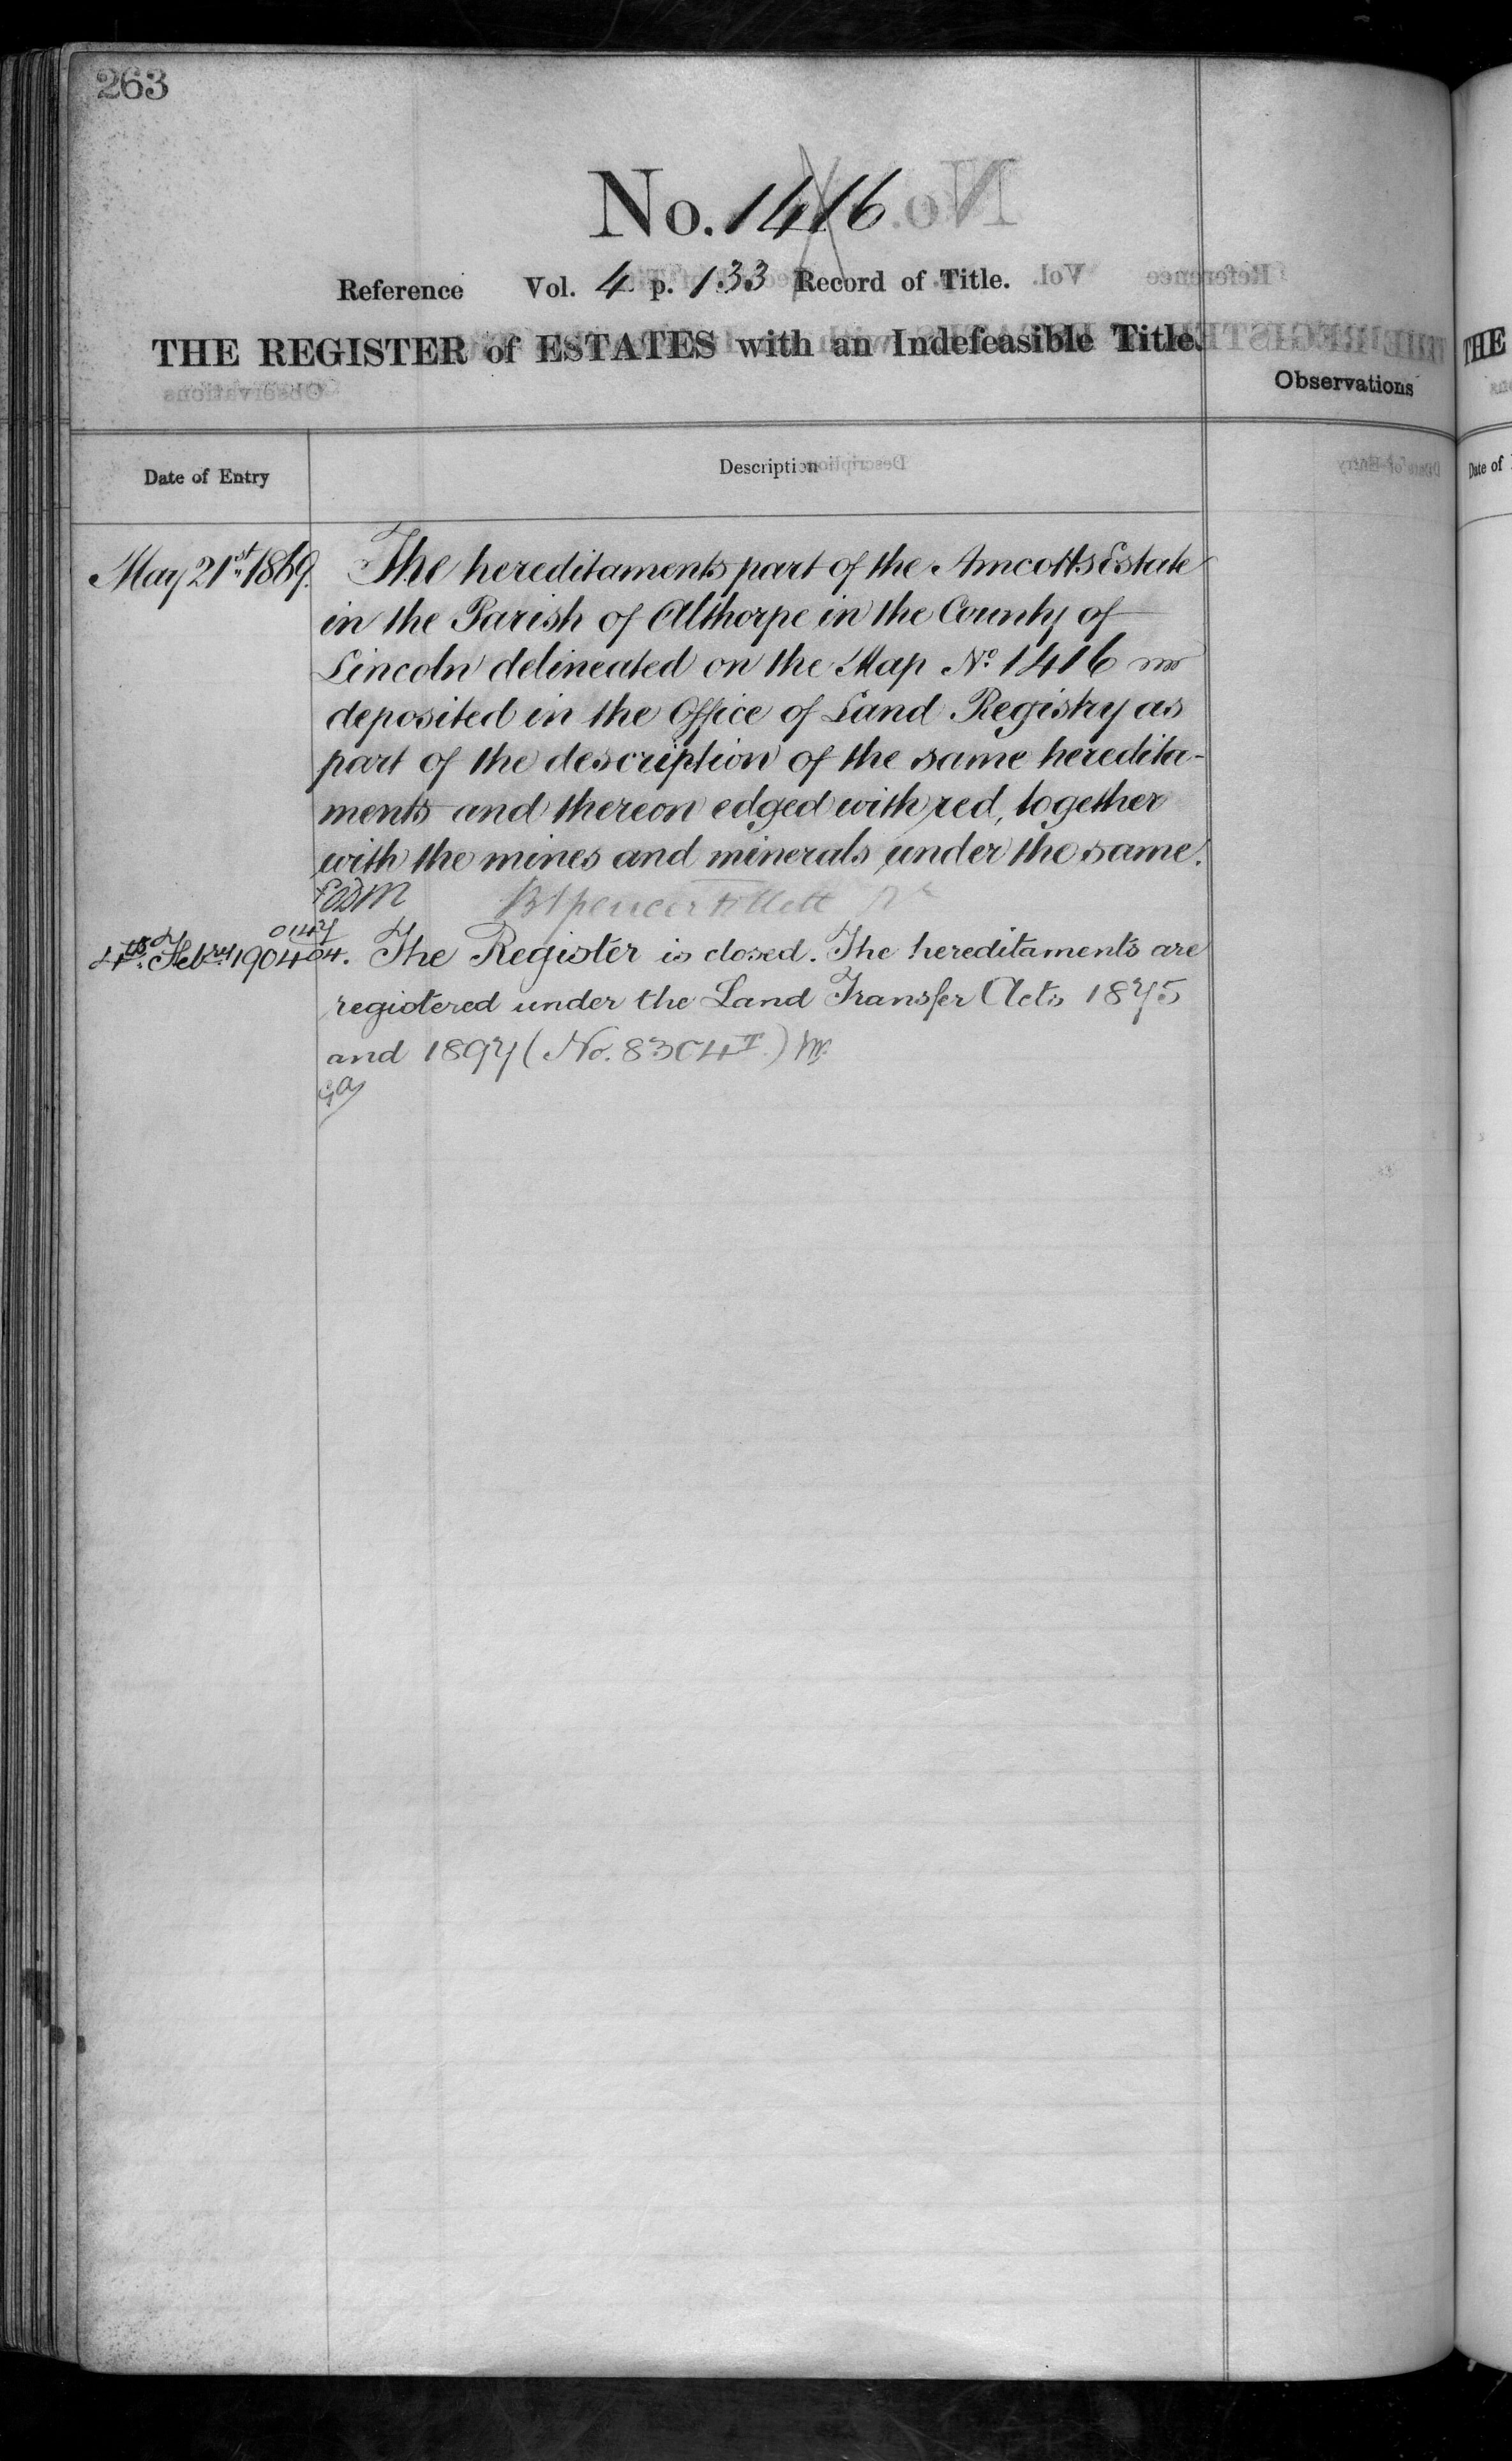 263
No. 1416
Reference Vol. 4 p. 133 Record of Title.
THE REGISTER of ESTATES with an Indefeasible Title.
Observations
Date of Entry Description
May 21st 1869. The hereditaments part of the Amcotts Estate
in the Parish of Althorpe in the County of
Lincoln delineated on the Map No. 1416
deposited in the Office of Land Registry as
part of the description of the same heredita-
ments and thereon edged with red, together
with the mines and minerals under the same.
B Spencer Follett
0147
04
4th Febry 1904. The Register is closed. The hereditaments are
registered under the Land Transfer Acts 1875
and 1897 (No. 8304 II.)
THE
Date of